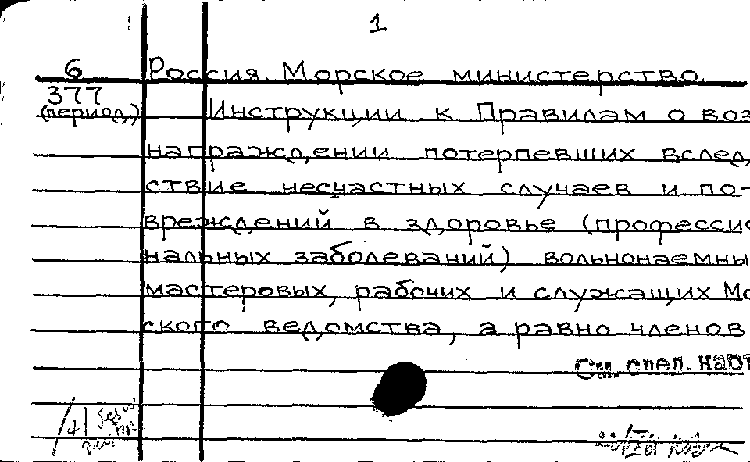 1
6 Россия. Морское министерство.
377 (период.) Инструкции к Правилам о воз
награждении потерпевших вслед
ствие несчастных случаев и по-
вреждений в здоровье (професси
нальных заболеваний) вольнонаемны
мастеровых, рабочих и служащих Мо
ского ведомства, а равно членов
См. след.